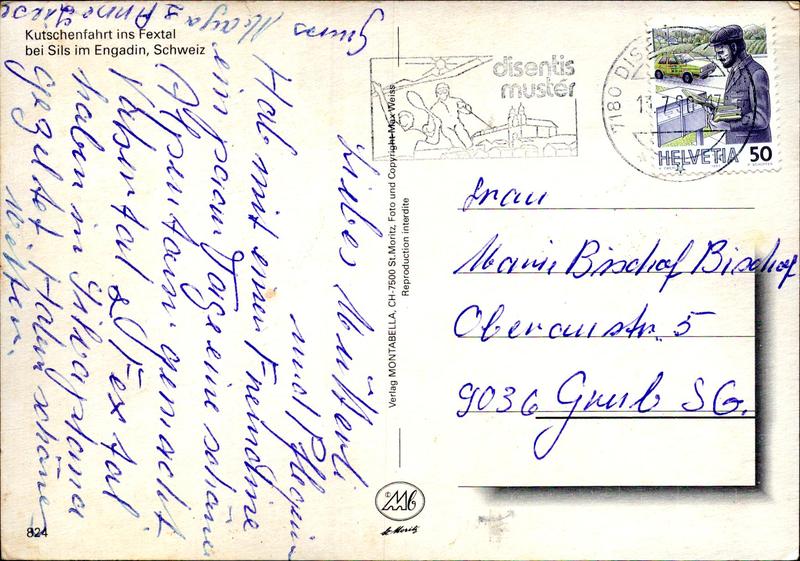 Kutschenfahrt ins Fextal
bei Sils im Engadin, Schweiz
Liebes Mütterli
und Pflegerin
Hab mit einer Freindine
ein paar Tage eine schöne
Alpentour gemacht
Fextal
haben in Silvaplana
gezeltet. Haben schöne
Wetter.
Gruss
Maya
& Anneliese
824
Verlag MONTABELLA, CH-7500 St. Moritz, Foto und Copyright Max Weiss
Reproduction interdite
© Mb
St. Moritz
disentis
mustér
7180 DIS
13.7.90
HELVETIA 50
Frau
Marie Bischof Bischof
Oberaustr. 5
9036 Grub SG.